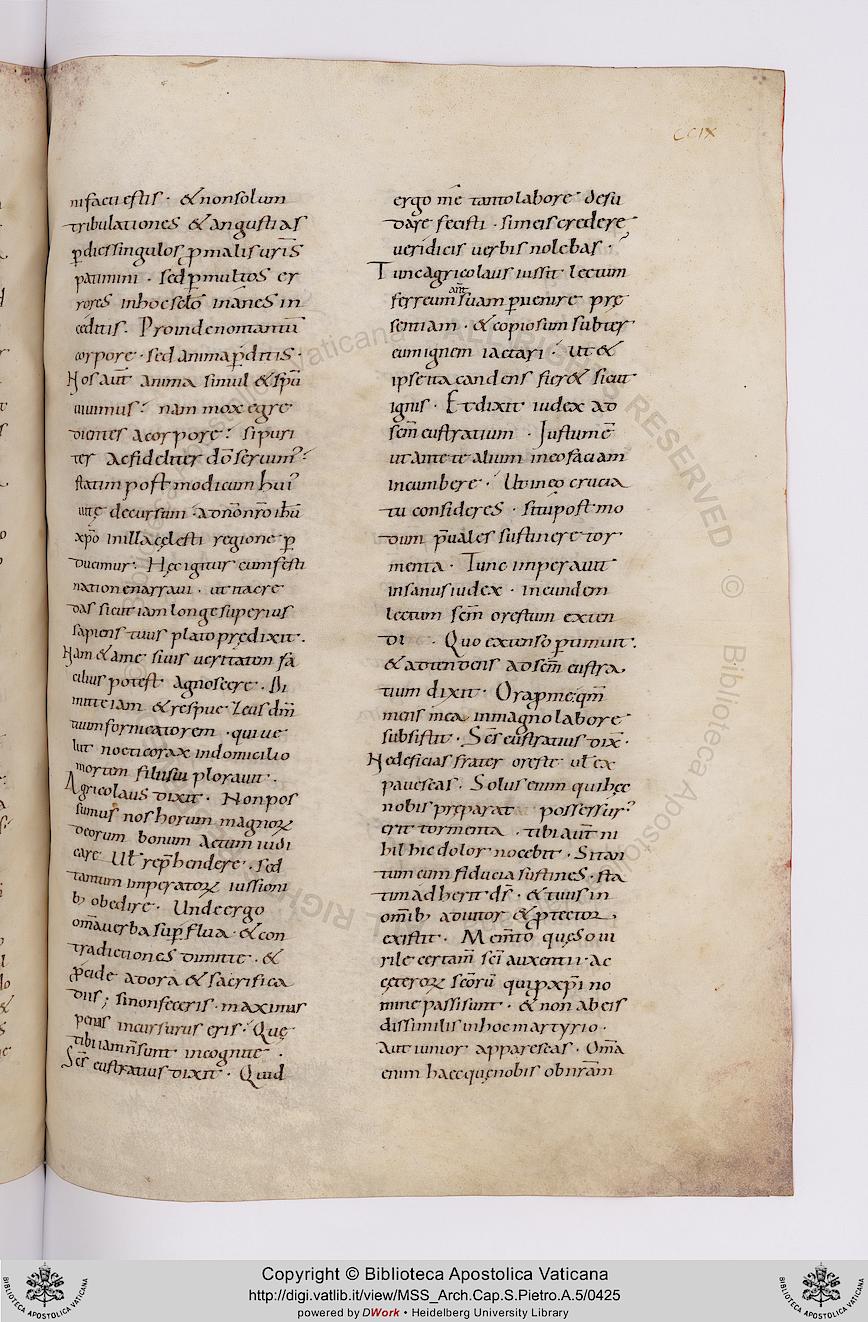 CCIX
nifacti estis · & non solum
tribulationes & angustias
p̱ dies singulos p̱ malis ur̄is
patimini · sed p̱ multos er
rores in hoc sc̄lo inanes in
ceditis · Proinde non tantū
corpore · sed anima p̱ditis ·
Nos aūt anima simul & sp̄u
uiuimus · nam mox egre
dientes a corpore · si puri
ter ac fideliter dō seruim̄
statim post modicum hui
uitę decursum · ad n̄o ih̄u
xp̄o in illa cęlesti regione p̱
ducimur · Hęc igitur cum festi
natione narraui · ut tu cre
das sicut iam longe superius
sapiens tuus plato prędixit ·
Nam & a me si uis ueritatem fa
cilius potest agnoscere · Di
mitte iam & respue deū
tuum formicatorem · qui ue
lut nocticorax in domicilio
mortem filii sui plorauit ·
Agricolaus dixit · Non pos
sumus nos horum magnoꝝ
deorum bonum actum iudi
care Ut rep̱hendere · sed
tantum imperatoꝝ iussioni
b; obedire · Unde ergo
om̄a uerba sup̱flua & con
tradictiones dimitte · &
p̱cide adora & sacrifica
diis ; si non feceris · maximas
penas incursurus eris · Quę
tibi iam n̄ sunt incognite ·
Sc̄s eustratius dixit · Quid
ergo mē tanto labore desu
dare fecisti · si meis credere
ueridicis uerbis nolebas ·
Tunc agricolaus iussit lectum
ferreum añt suam p̱uenire prę
sentiam · & copiosum subter
eum ignem iactari · Ut &
ipse ita candens fier& sicut
ignis · Et dixit iudex ad
sc̄m eustratium · Iustum ē
ut ante te alium in eo faciam
incumbere · Ut in eo crucia
tu consideres · si tu post mo
dum p̱uales sustinere tor
menta · Tunc imperauit
insanus iudex · in eundem
lectum sc̄m orestum exten
di · Quo extenso p̱timuit ·
& adtendens ad sc̄m eustra
tium dixit · Ora p̱ me · qm̄
mens mea in magno labore
subsistit · Sc̄s eustratius dix̄ ·
Ne deficias frater oreste uł ex
pauescas · Solus enim qui hęc
nobis pręparat possessur
erit tormenta · tibi aūt ni
hil hic dolor nocebit · Si tan
tum cum fiducia sustines · sta
tim adherit ds̄ · & tuus in
om̄ib; adiutor & p̱tectoꝝ
existit · Mem̄to quęso ui
rile certam̄ sc̄i auxentii · ac
cęteroꝝ sc̄orū qui p̱ xp̄i no
mine passi sunt · & non ab eis
dissimilis in hoc martyrio ·
Aut iunior appareseas · Om̄a
enim haec quę nobis ob nr̄am
Copyright © Biblioteca Apostolica Vaticana
http://digi.vatlib.it/view/MSS_Arch.Cap.S.Pietro.A.5/0425
powered by DWork • Heidelberg University Library